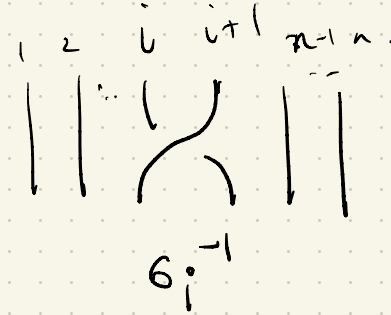 1 2 ... i i+1 n-1 n
σ_i^{-1}